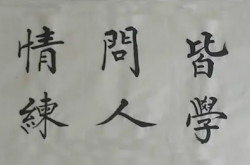 皆學
問人
情練